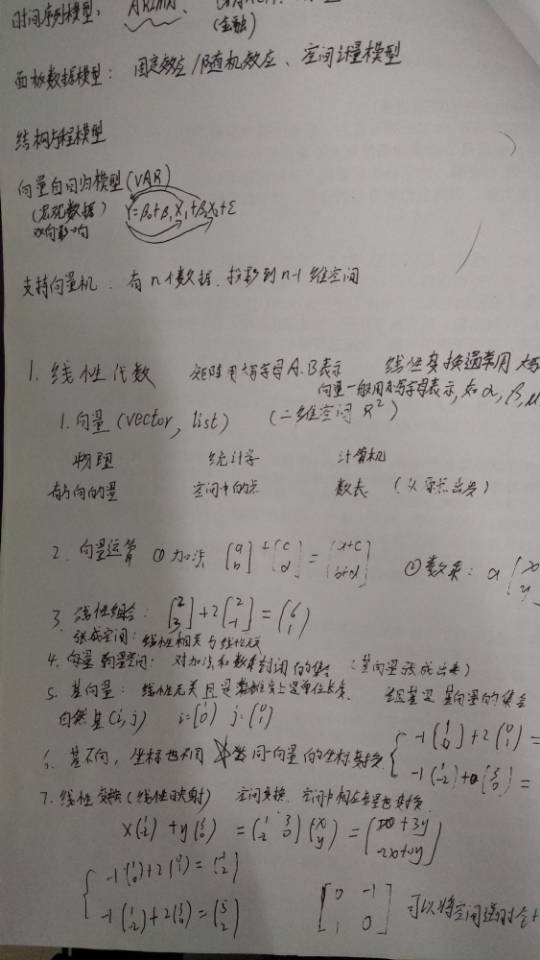 时间序列模型： ARIMA、
(金融)
面板数据模型： 固定效应/随机效应、空间计量模型
结构方程模型
向量自回归模型(VAR)
(宏观数据) Y=β₀+β₁X₁+β₂X₂+ε
双向影响
支持向量机：有n个数据，投影到n-1维空间
1. 线性代数 矩阵用大写字母A.B表示 线性变换通常用大写
向量一般用小写字母表示，如α,β,μ
1. 向量(vector, list) (二维空间R²)
物理 统计学 计算机
有方向的量 空间中的点 数表 (从原点出发)
2. 向量运算 ①加法 [a b]+[c d]=[a+c b+d] ②数乘： a
3. 线性组合： [2 3]+2[2 -1]=[6 1]
张成空间：线性相关与线性无关
4. 向量空间： 对加法和数乘封闭的集合 (基向量张成出来)
5. 基向量： 线性无关且是单位长度 组基是基向量的集合
自然基(i,j) i=(1 0) j=(0 1)
6. 基不同，坐标也不同 同一向量的坐标变换 { -1(1 0)+2(0 1)=
-1(1 -2)+
7. 线性变换(线性映射) 空间变换，空间中向量也变换
x(1 -2)+y(3 0)=(1 3 -2 0)(x y)=
{ -1(1 0)+2(0 1)=(-1 2)
-1(1 -2)+2(3 0)=(5 2)
[0 -1 1 0] 可以将空间逆时针